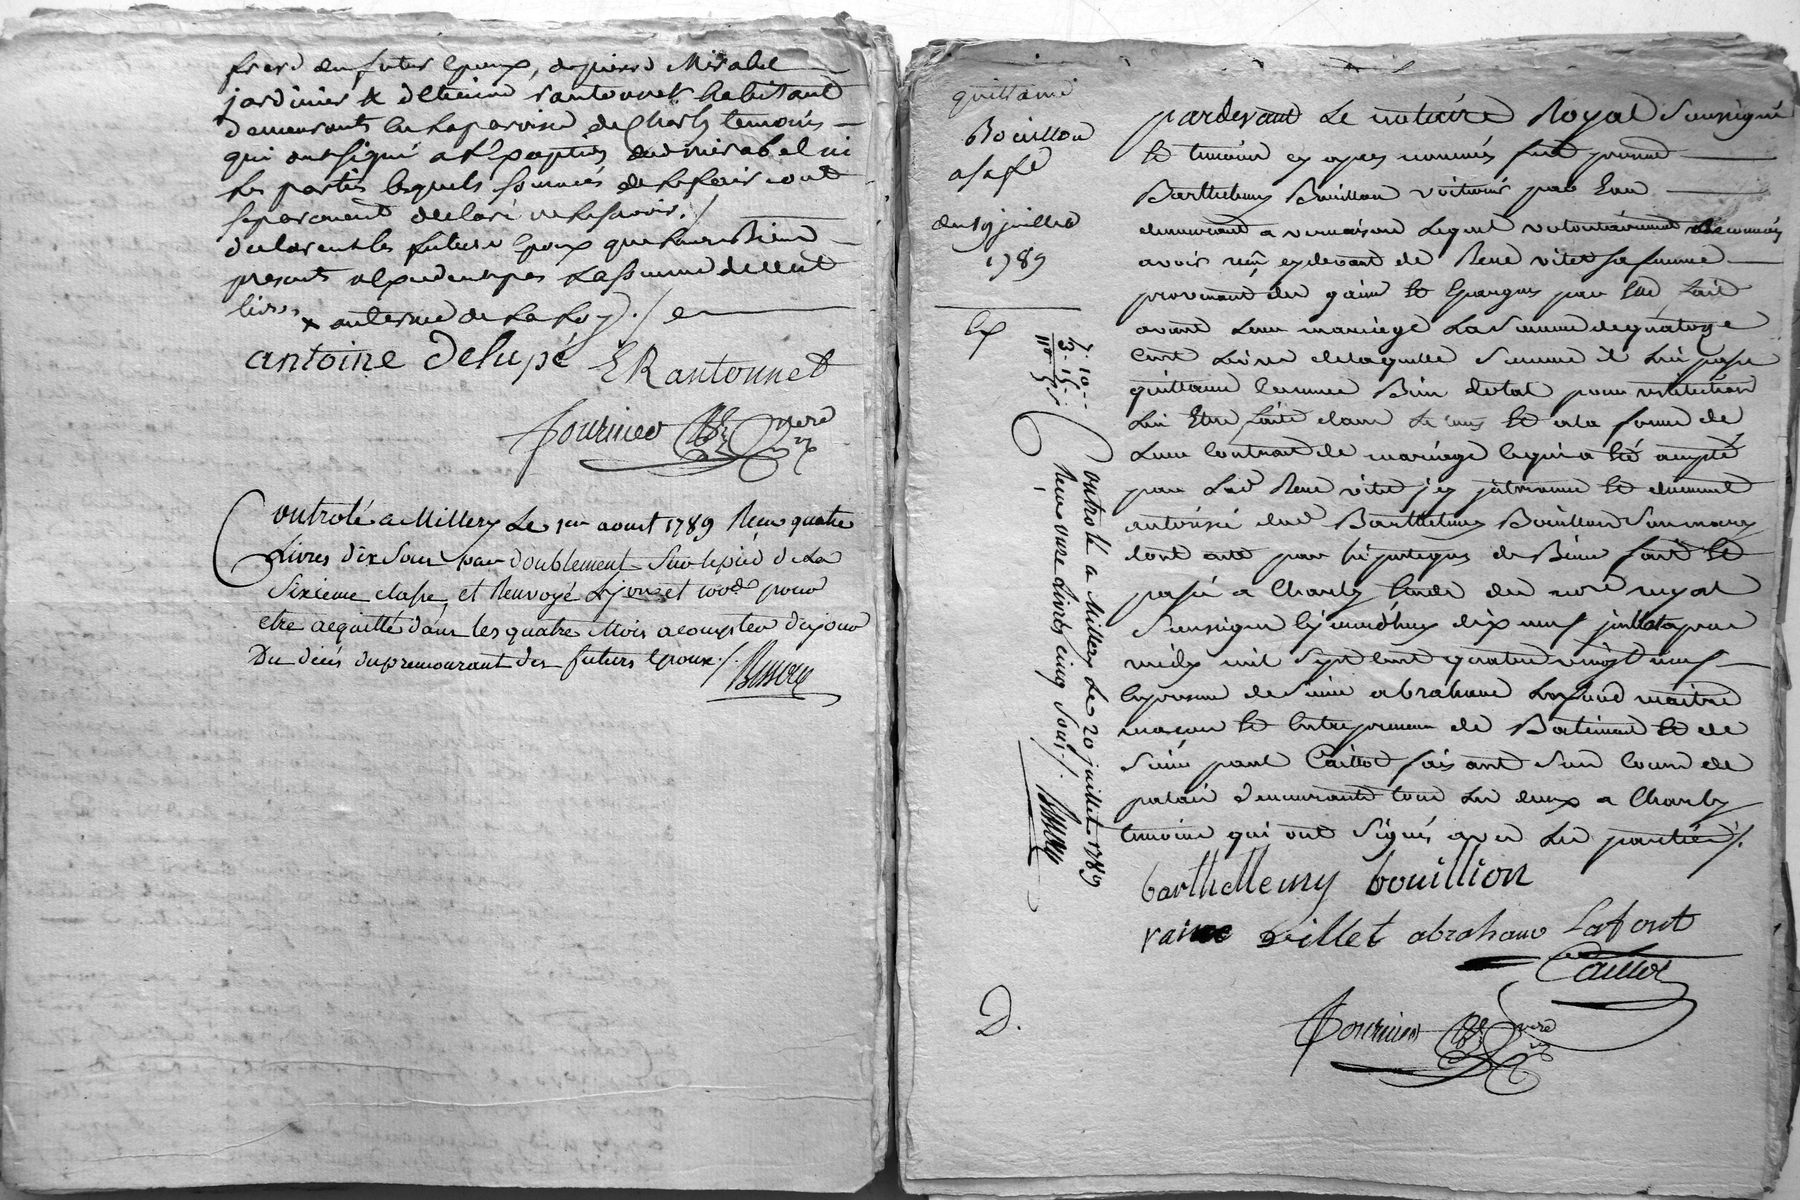 frere du futur epoux, de pierre Mirabel
jardinier & d'etienne rantonnet habitant
demeurants en la paroise de Charly temoins
qui ont signé a l'exception dud mirabel ni
les parties lesquels sommés de le faire ont
separement declaré ne le savoir ./
declarent les futurs epoux que leurs Biens
presents n'excedent pas la somme de cent
livres x au terme de la Loy ./
antoine delupé E Rantonnet
fournier
Controlé a Millery Le 1er aoust 1789 Reçu quatre
Livres dix Sous par doublement Sur le pié de La
Sixieme classe, et Renvoyé pour
etre acquitté dans les quatre Mois a compter du jour
Du décés du premourant des futurs epoux ./.
quittance
Bouillon
a sa fe
du 19 juillet
1789
ex
7. 10..
3. 15..
11# 5s
Controlé a Millery Le 20 juillet 1789
Reçu onze Livres cinq Sous ./.
pardevant Le notaire Royal Soussigné
et temoins cy apres nommés fut present
Barthelemy Bouillon voiturier par Eau
demeurant a vernaison lequel volontairement
avoir reçu cy devant de Rene vitet sa femme
provenant des gains et Epargnes par Elle fait
avant Leur mariage La Somme de quatorze
cent Livres de laquelle Somme il lui passe
quittance comme Bien dotal pour restitution
Lui Etre faite dans le cas et a la forme de
Leur contrat de mariage ce qui a été accepté
par Lad Rene vitet icy presente et dument
autorisé dud Barthelemy Bouillon Son mary
dont acte par hipoteques de Biens fait et
passé a Charly Etude du nore royal
Soussigné ce jourdhuy dix neuf juillet apres
midy mil Sept cent quatre vingt neuf
en presence de Sieur abraham Lafond maitre
maçon et Entrepreneur de Batiment et de
Sieur paul Caillot faisant Son cours de
palais demeurants tous Les deux a Charly
temoins qui ont Signés avec Les parties ./.
barthellemy bouillion
raine villet abraham Lafont
Caillot
fournier
D.